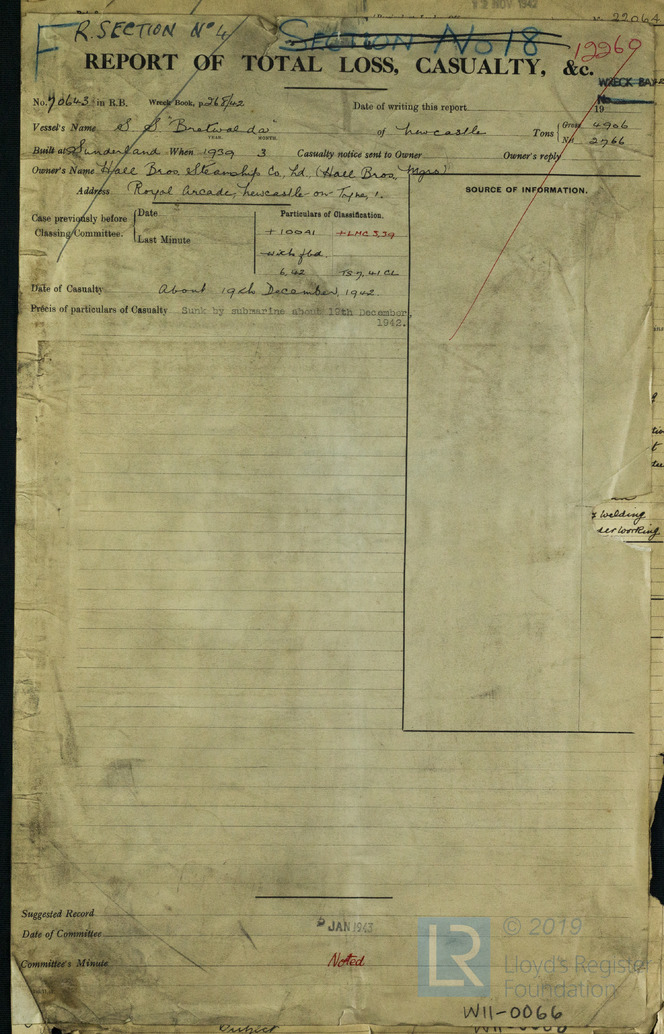 12 NOV 1942
22064
F R. SECTION Nº 4
SECTION No 18
12269
REPORT OF TOTAL LOSS, CASUALTY, &c.
WRECK BAY
No.
No. 70643 in R.B. Wreck Book, p. 268/42 Date of writing this report 19
Vessel's Name S S "Bretwalda" of Newcastle Tons Gross 4906
Net 2766
YEAR. MONTH.
Built at Sunderland When 1939 3 Casualty notice sent to Owner Owner's reply
Owner's Name Hall Bros. Steamship Co., Ltd. (Hall Bros, Mgrs)
Address Royal Arcade, Newcastle-on-Tyne, 1.
SOURCE OF INFORMATION.
Case previously before Classing Committee. Date
Last Minute
Particulars of Classification.
+100A1 +LMC 3,39
with fbd.
6,42 TS 7,41 CL
Date of Casualty About 19th December, 1942.
Précis of particulars of Casualty Sunk by submarine about 19th December,
1942.
& welding
Suggested Record
Date of Committee JAN 1943
Committee's Minute Noted
LR © 2019
Lloyd's Register
Foundation
W11-0066